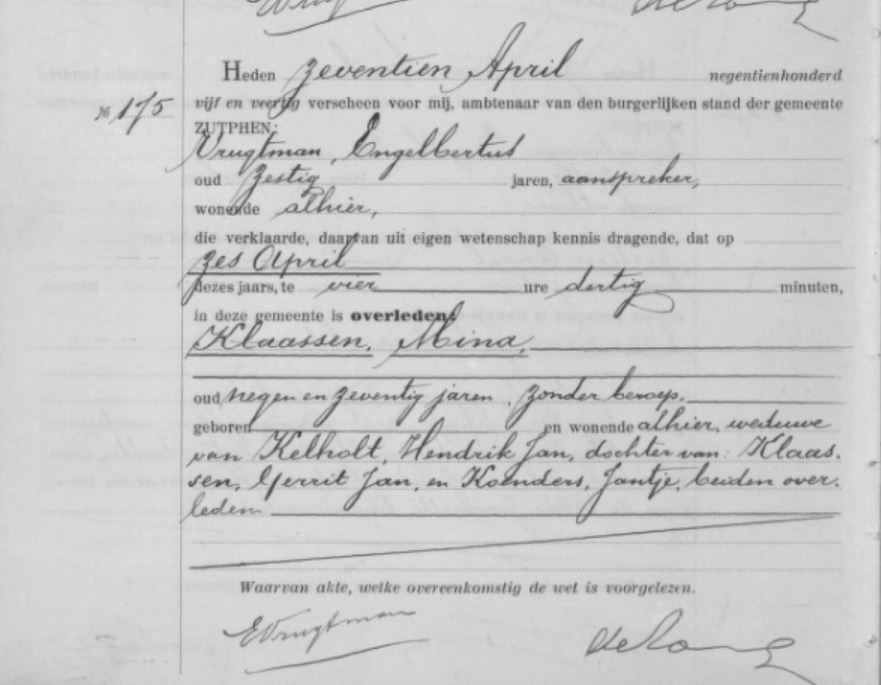 Heden zeventien April negentienhonderd
№ 175 vijf en veertig verscheen voor mij, ambtenaar van den burgerlijken stand der gemeente
ZUTPHEN:
Vrugtman, Engelbertus
oud zestig jaren, aanspreker,
wonende alhier,
die verklaarde, daarvan uit eigen wetenschap kennis dragende, dat op
zes April
dezes jaars, te vier ure dertig minuten,
in deze gemeente is overleden:
Klaassen, Mina,
oud negen en zeventig jaren, zonder beroep,
geboren en wonende alhier, weduwe
van Kelholt, Hendrik Jan, dochter van: Klaas-
sen, Gerrit Jan, en Koenders, Jantje, beiden over-
leden
Waarvan akte, welke overeenkomstig de wet is voorgelezen.
EVrugtman